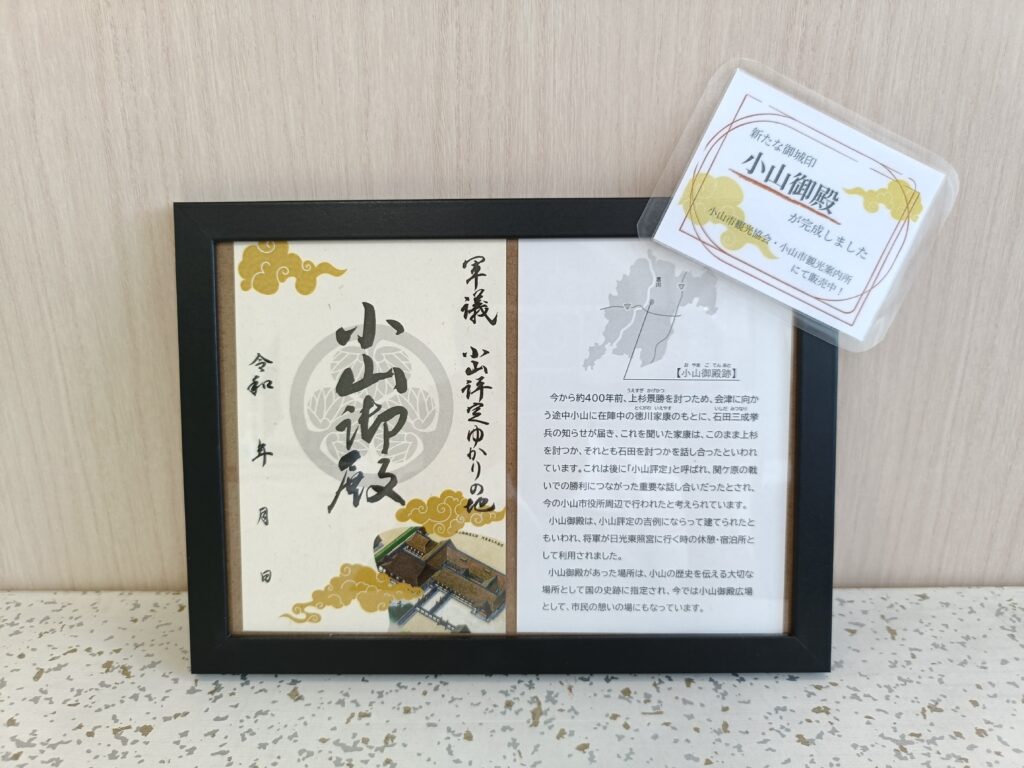 軍議 小山評定ゆかりの地
小山御殿
令和 年 月 日
【小山御殿跡】
お やま ご てん あと
うえすぎ かげかつ
今から約400年前、上杉景勝を討つため、会津に向か
とくがわ いえやす
いしだ みつなり
う途中小山に在陣中の徳川家康のもとに、石田三成挙
兵の知らせが届き、これを聞いた家康は、このまま上杉
を討つか、それとも石田を討つかを話し合ったといわれ
ています。これは後に「小山評定」と呼ばれ、関ケ原の戦
いでの勝利につながった重要な話し合いだったとされ、
今の小山市役所周辺で行われたと考えられています。
小山御殿は、小山評定の吉例にならって建てられたと
もいわれ、将軍が日光東照宮に行く時の休憩・宿泊所と
して利用されました。
小山御殿があった場所は、小山の歴史を伝える大切な
場所として国の史跡に指定され、今では小山御殿広場
として、市民の憩いの場にもなっています。
新たな御城印
小山御殿
が完成しました
小山市観光協会・小山市観光案内所
にて販売中!